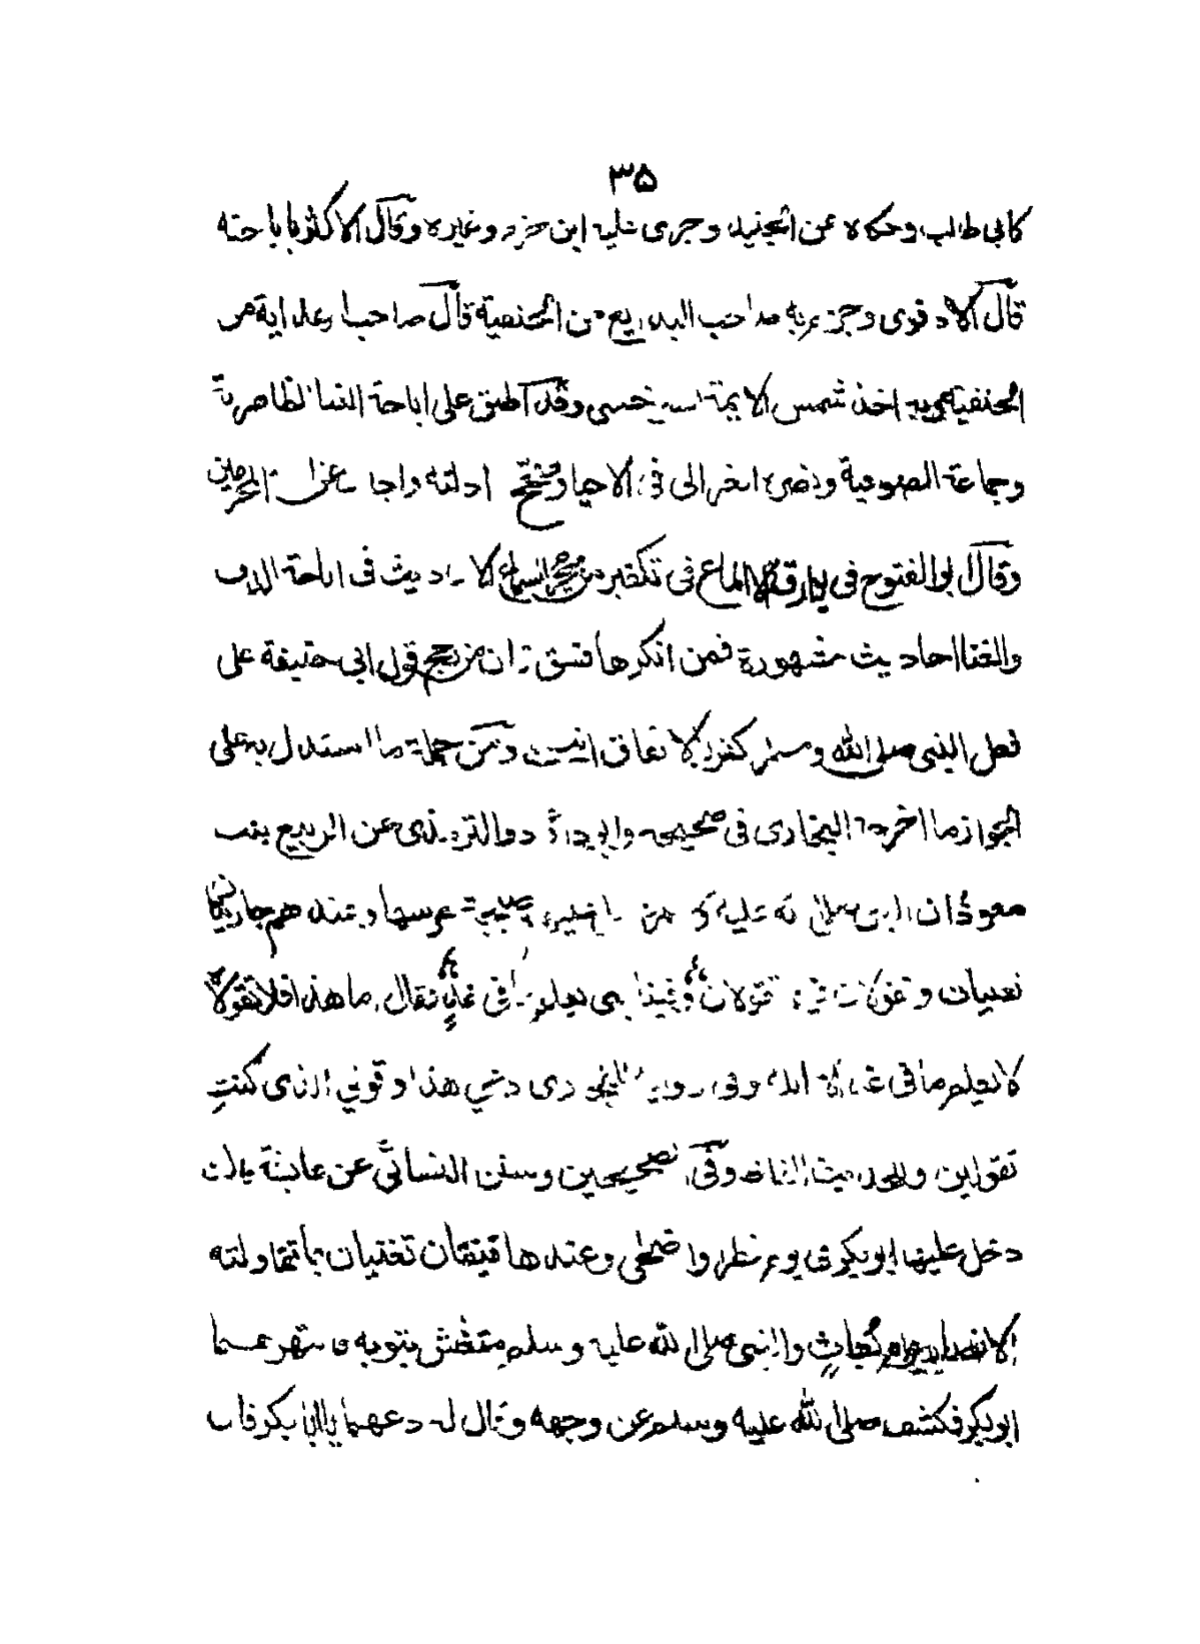 ٣٥
كابى طالب وحكاه عن الجنيد وجرى عليه ابن حزم وغيره وقال الاكثر باباحته
قال الادفوى وجزم به صاحب البديع من الحنفية قال صاحب الهداية من
الحنفية وبه اخذ شمس الايمة السرخسى وقد اطلق على اباحة الغنا الظاهرية
وجماعة الصوفية ونصره الغزالى فى الاحيا ادلته واجاب عن
وقال ابو الفتوح فى الالماع فى تكفير من السماع الاحاديث فى اباحة الدف
والغنا احاديث مشهورة فمن انكرها فسق ان من رجح قول ابى حنيفة على
فعل النبى صلى الله وسلم كفر بالاتفاق انتهت ومن جملة ما استدل به على
الجواز ما اخرجه البخارى فى صحيحه وابو داؤد والترمذى عن الربيع بنت
معوذ ان النبى صلى الله عليه عرسها وعندهم جاريتان
تغنيان وتقولان تقولان وفينا نبى يعلم ما فى غدٍ فقال ما هذا فلا تقولاه
لا يعلم ما فى غد الا الله وفى رواية البخارى دعى هذا وقولي الذى كنتِ
تقولين والحديث الثانى وفى الصحيحين وسنن النسائى عن عايشة قالت
دخل عليها ابوبكر فى يوم فطر واضحى وعندها قينتان تغنيان بما تقاولته
الانصار يوم بعاثٍ والنبى صلى الله عليه وسلم متغش بثوبه فانتهرهما
ابوبكر فكشف صلى الله عليه وسلم عن وجهه وقال له دعهما يا ابابكر فان